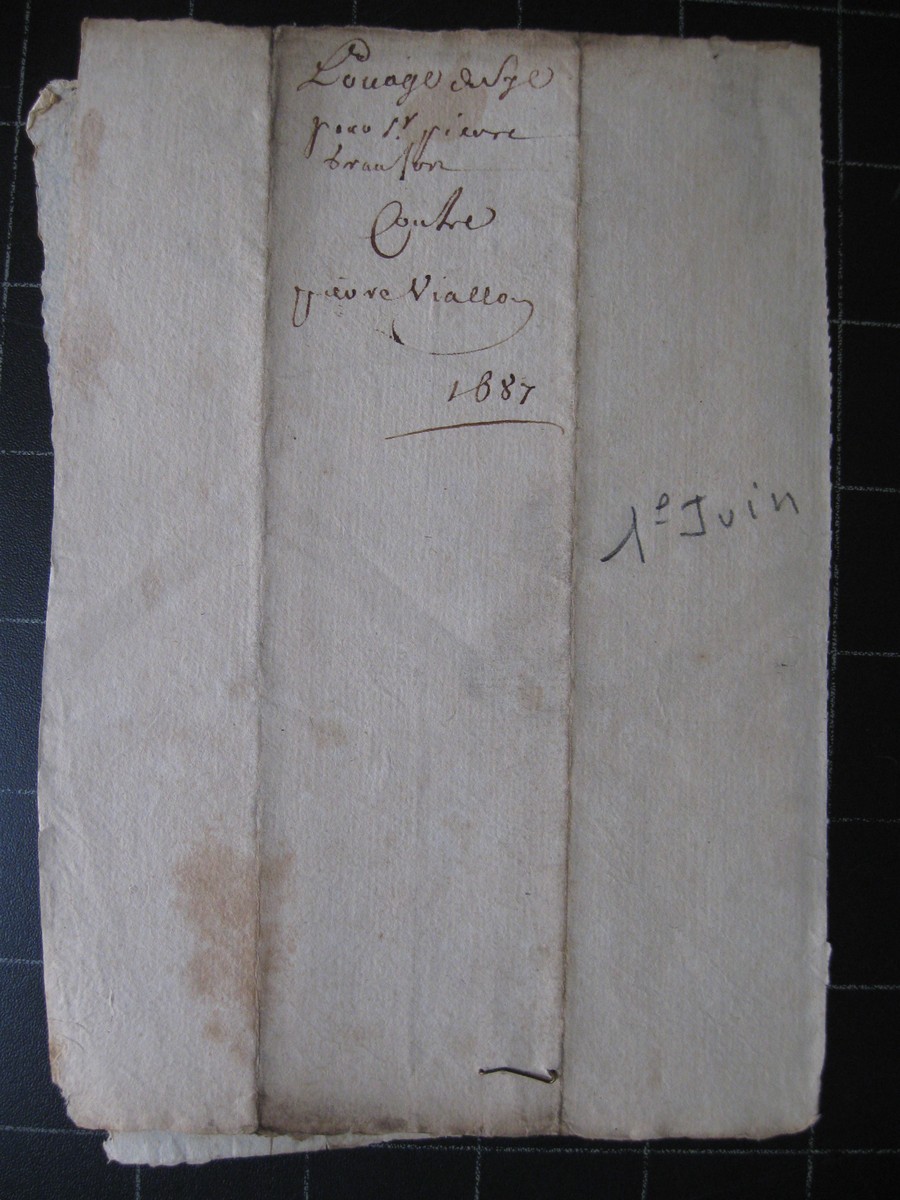 Louage de
pour Sr pierre
Contre
pierre Viallon
1687
1e Juin